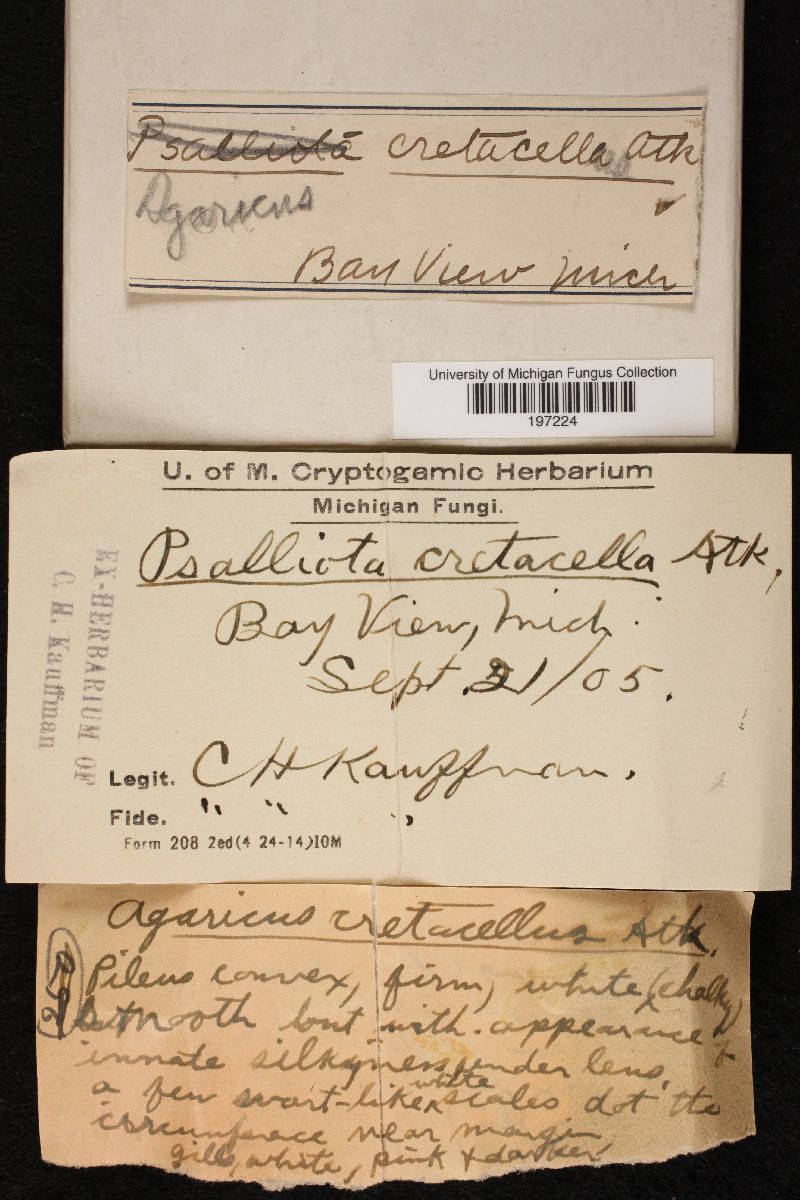 Psalliota cretacella Atk
Agaricus
Bay View Mich
University of Michigan Fungus Collection
197224
U. of M. Cryptogamic Herbarium
Michigan Fungi.
Psalliota cretacella Atk.
Bay View, Mich.
Sept. 21/05.
EX-HERBARIUM OF
C. H. Kauffman
Legit. C H Kauffman.
Fide. " " "
Form 208 2ed(4 24-14)10M
Agaricus cretacellus Atk.
Pileus convex, firm, white (chalky)
smooth but with appearance of
innate silkyness under lens,
a few wart-like white scales dot the
circumference near margin
gills, white, pink & darker